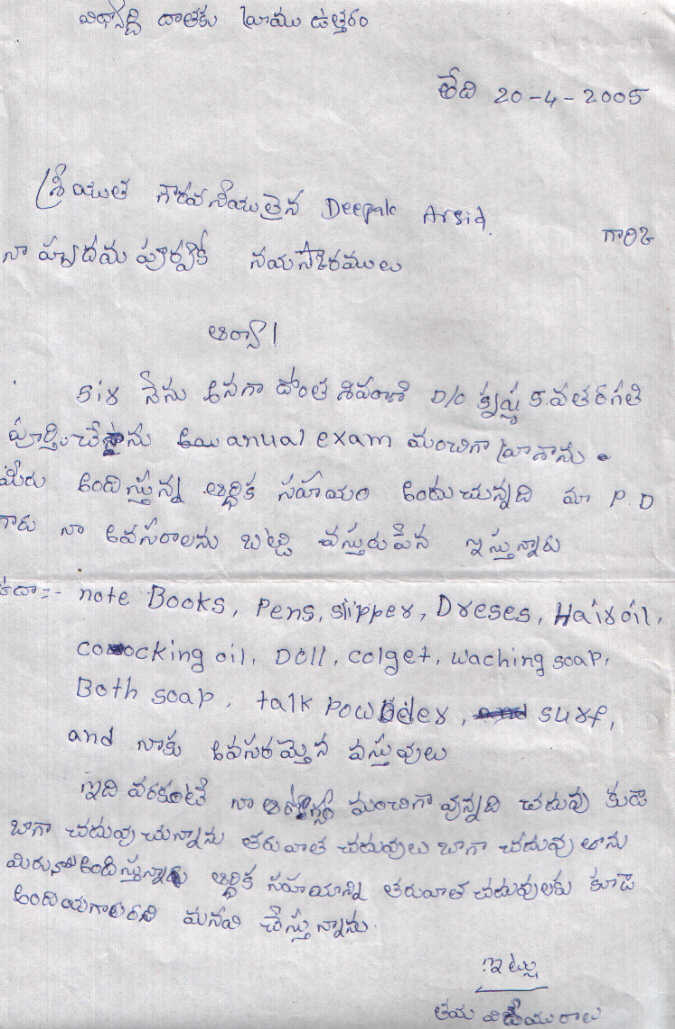 దాతకు వ్రాయు ఉత్తరం
తేది 20-4-2005
శ్రీయుత గౌరవనీయులైన Deepak Arsid.
గారికి
నా హృదయ పూర్వక నమస్కారములు
ఆర్యా!
six నేను అనగా దొంత శివరాణి D/O కృష్ణ 5వతరగతి
పూర్తిచేశాను అయి anual exam మంచిగా వ్రాశాను.
మీరు అందిస్తున్న ఆర్థిక సహయం అందుచున్నది మా P.D
గారు నా అవసరాలను బట్టి వస్తురుపేన ఇస్తున్నారు
ఉదా:- note Books, Pens, slipper, Dreses, Hairoil,
cocking oil, Doll, colget, waching soap,
Both soap, talk powdder, surf,
and నాకు అవసరమైన వస్తువులు
ఇది వరకంటే నా ఆరోగ్యం మంచిగా వున్నది చదువు కుడా
బాగా చదువుచున్నాను తరువాత చదువులు బాగా చదువుతాను
మిరు అందిస్తున్నారు ఆర్థిక సహయాన్ని తరువాత చదువులకు కూడా
అందియగలరని మనవి చేస్తున్నాను.
ఇట్లు
తమ విదేయురాలు